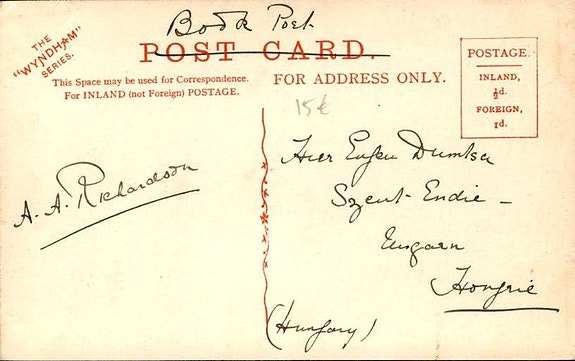 Book Post
THE
"WYNDHAM"
SERIES.
POST CARD.
This Space may be used for Correspondence.
For INLAND (not Foreign) POSTAGE.
FOR ADDRESS ONLY.
POSTAGE.
INLAND,
½d.
FOREIGN,
1d.
15€
A. A. Richardson
Herr Eugen Dumtsa
Szent-Endie -
Ungarn
Hongrie
(Hungary)